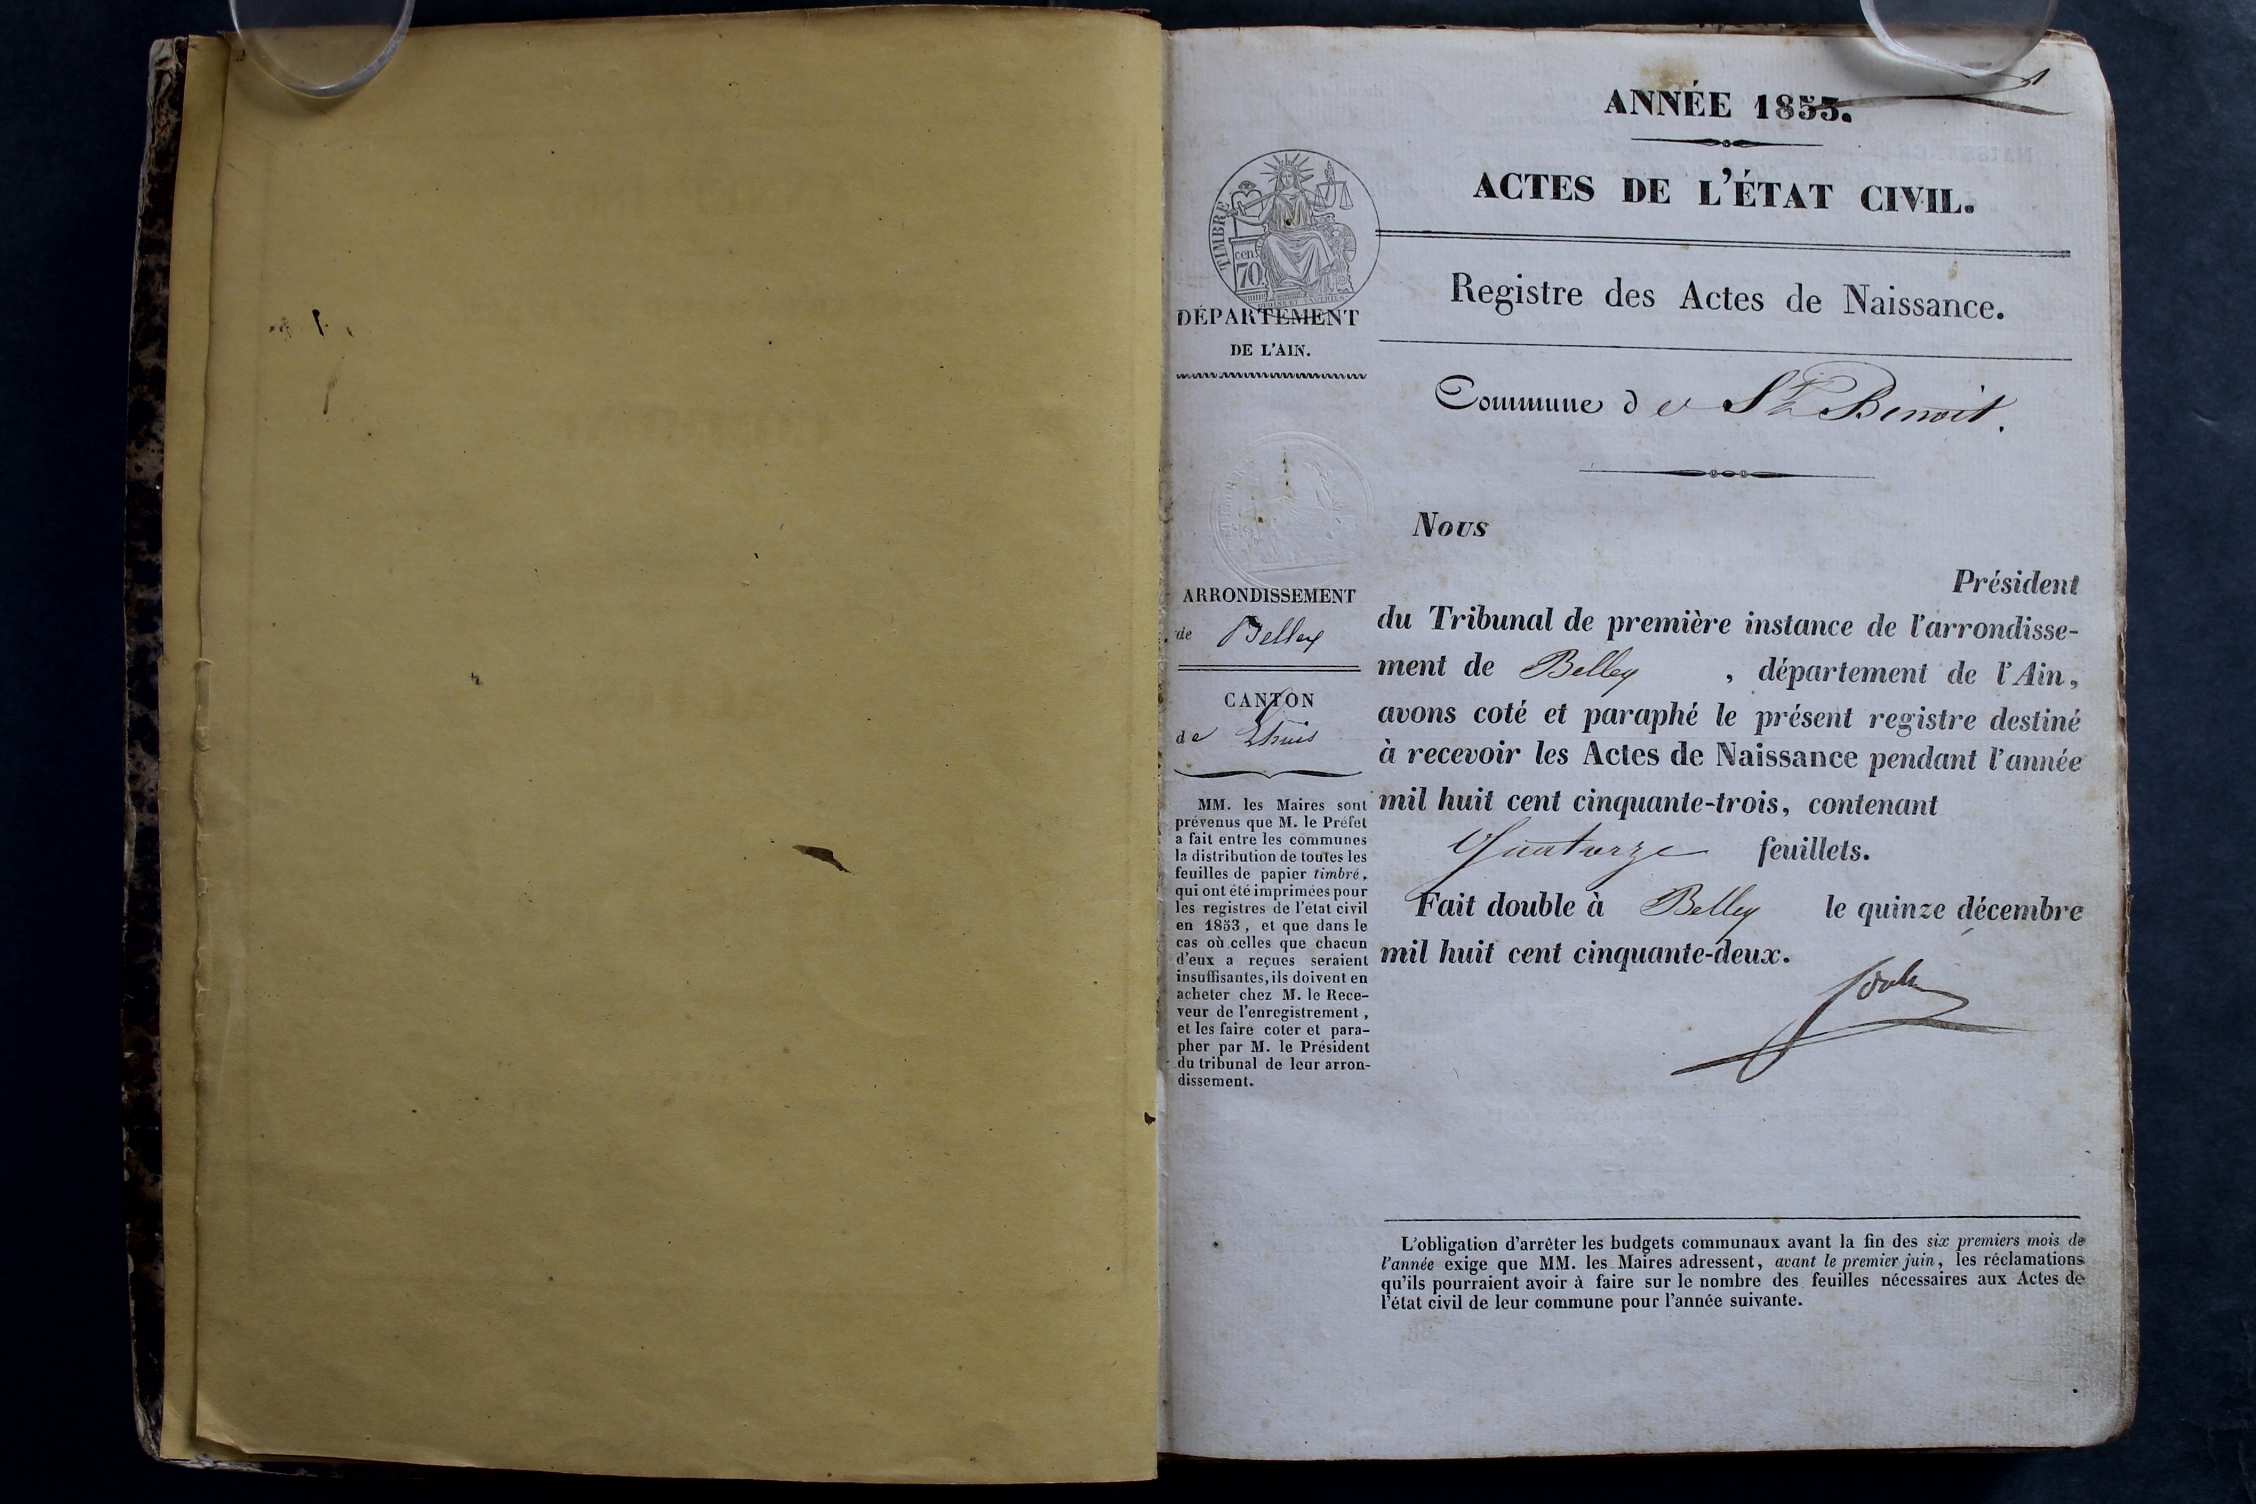 ANNÉE 1853.
ACTES DE L'ÉTAT CIVIL.
TIMBRE
cen
70
DÉPARTEMENT
DE L'AIN.
Registre des Actes de Naissance.
Commune de St Benoit.
ARRONDISSEMENT
de Belley
CANTON
de Lhuis
MM. les Maires sont
prévenus que M. le Préfet
a fait entre les communes
la distribution de toutes les
feuilles de papier timbré,
qui ont été imprimées pour
les registres de l'état civil
en 1853, et que dans le
cas où celles que chacun
d'eux a reçues seraient
insuffisantes, ils doivent en
acheter chez M. le Rece-
veur de l'enregistrement,
et les faire coter et para-
pher par M. le Président
du tribunal de leur arron-
dissement.
Nous
Président
du Tribunal de première instance de l'arrondisse-
ment de Belley, département de l'Ain,
avons coté et paraphé le présent registre destiné
à recevoir les Actes de Naissance pendant l'année
mil huit cent cinquante-trois, contenant
Quatorze feuillets.
Fait double à Belley le quinze décembre
mil huit cent cinquante-deux.
L'obligation d'arrêter les budgets communaux avant la fin des six premiers mois de
l'année exige que MM. les Maires adressent, avant le premier juin, les réclamations
qu'ils pourraient avoir à faire sur le nombre des feuilles nécessaires aux Actes de
l'état civil de leur commune pour l'année suivante.